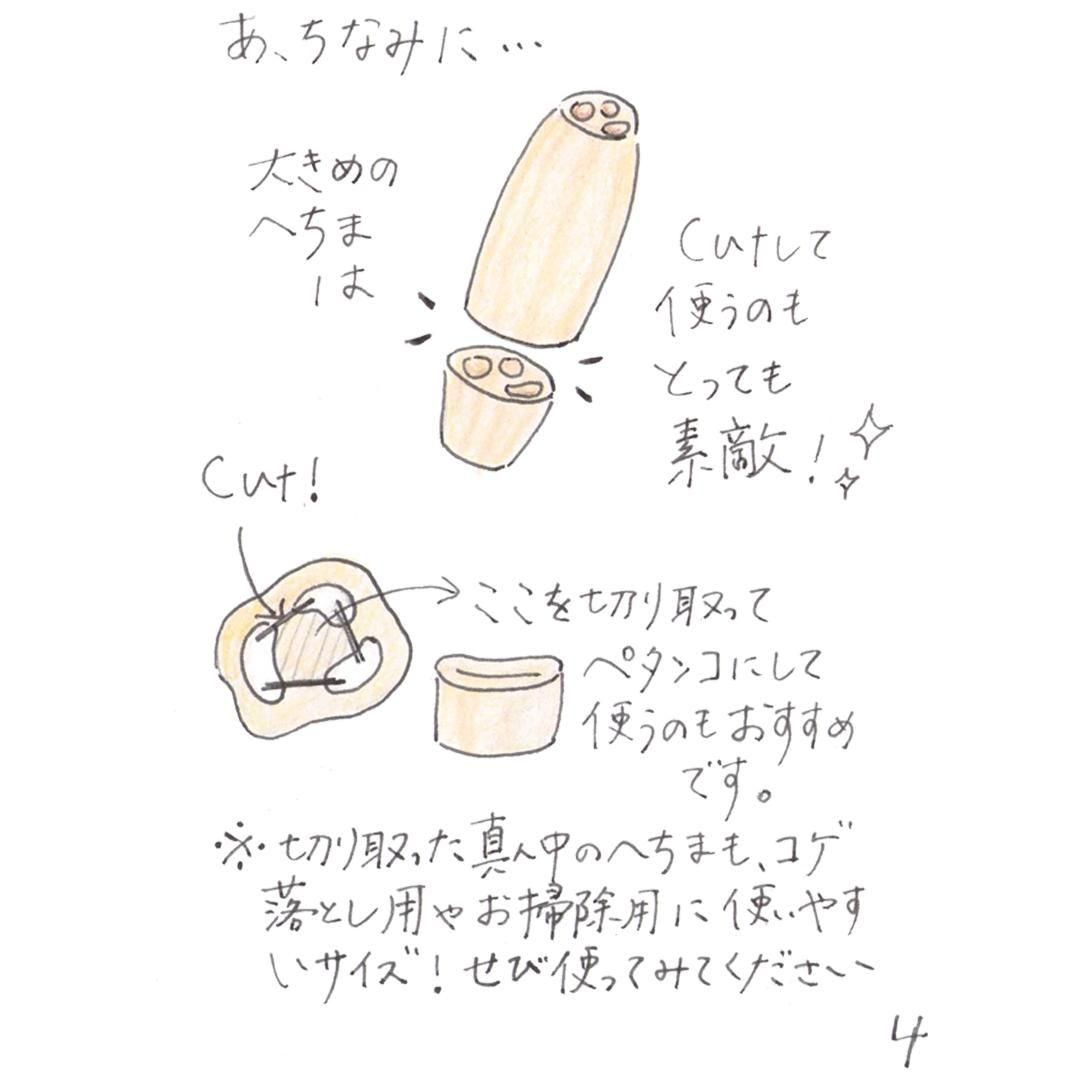 あ、ちなみに…
大きめの
へちま
は
Cutして
使うのも
とっても
素敵!
Cut!
ここを切り取って
ペタンコにして
使うのもおすすめ
です。
※切り取った真ん中のへちまも、コゲ
落とし用やお掃除用に使いやす
いサイズ!ぜひ使ってみてください
4